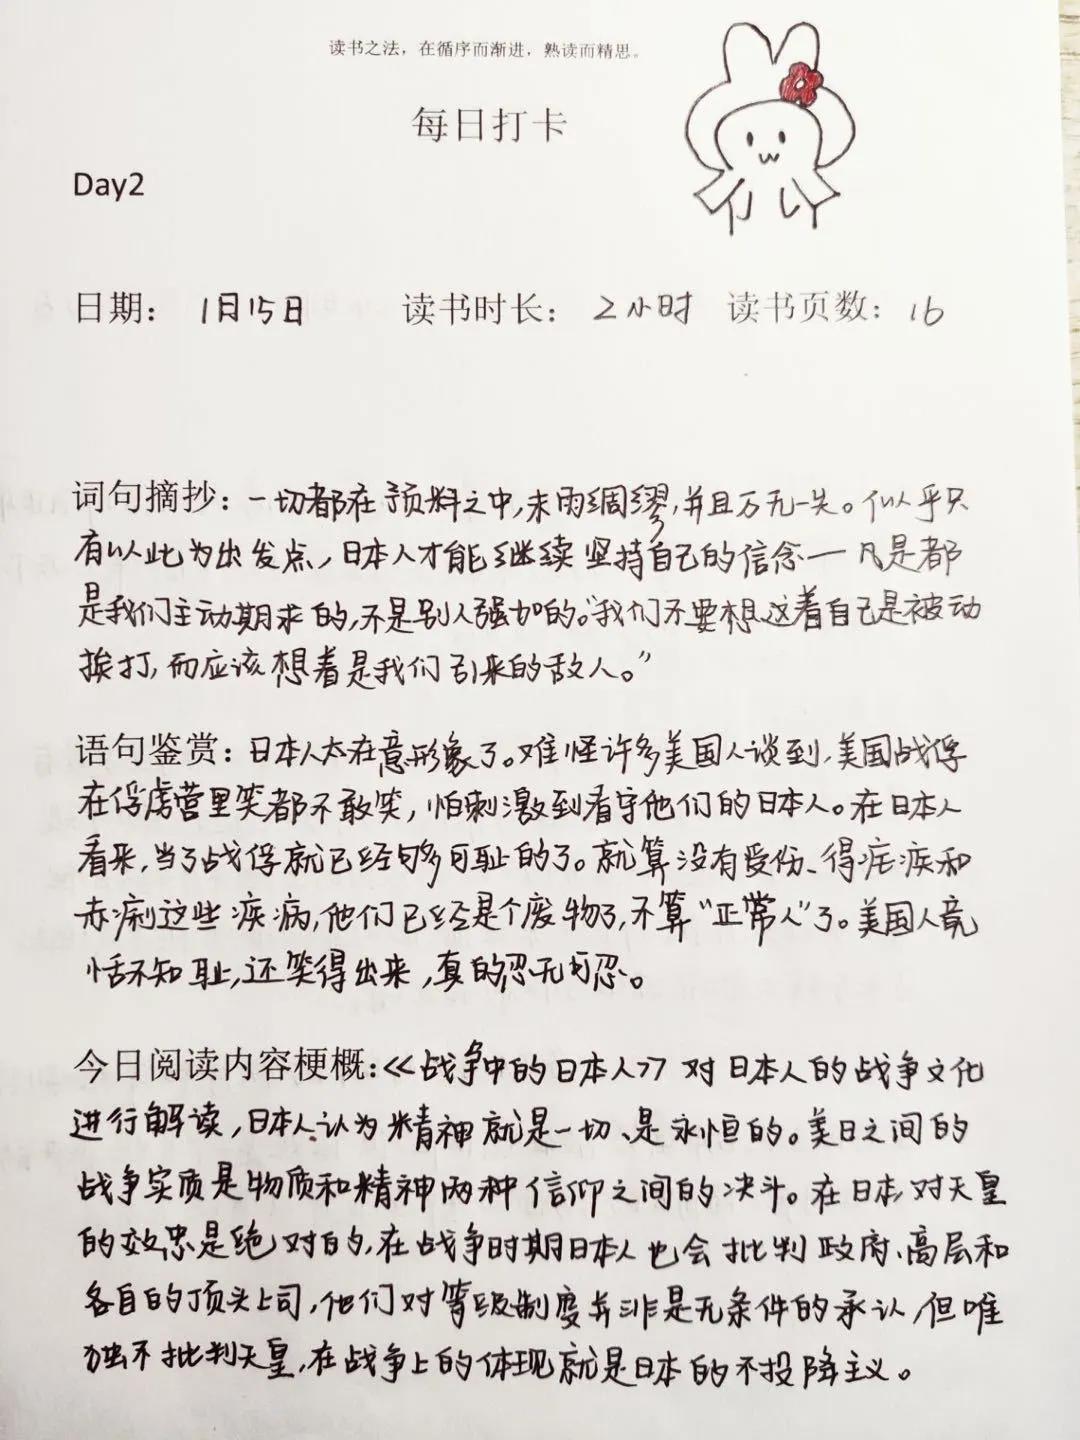 读书之法，在循序而渐进，熟读而精思。
每日打卡
Day2
日期： 1月15日 读书时长： 2小时 读书页数：16
词句摘抄：一切都在预料之中，未雨绸缪，并且万无一失。似乎只
有以此为出发点，日本人才能继续坚持自己的信念一凡是都
是我们主动期求的，不是别人强加的。“我们不要想这着自己是被动
挨打，而应该想着是我们引来的敌人。”
语句鉴赏：日本人太在意形象了。难怪许多美国人谈到，美国战俘
在俘虏营里笑都不敢笑，怕刺激到看守他们的日本人。在日本人
看来，当了战俘就已经够可耻的了。就算没有受伤、得疟疾和
赤痢这些疾病，他们已经是个废物了，不算“正常人”了。美国人竟
恬不知耻，还笑得出来，真的忍无可忍。
今日阅读内容梗概：《战争中的日本人》对日本人的战争文化
进行解读，日本人认为精神就是一切、是永恒的。美日之间的
战争实质是物质和精神两种信仰之间的决斗。在日本，对天皇
的效忠是绝对的，在战争时期日本人也会批判政府、高层和
各自的顶头上司，他们对等级制度并非是无条件的承认，但唯
独不批判天皇，在战争上的体现就是日本的不投降主义。